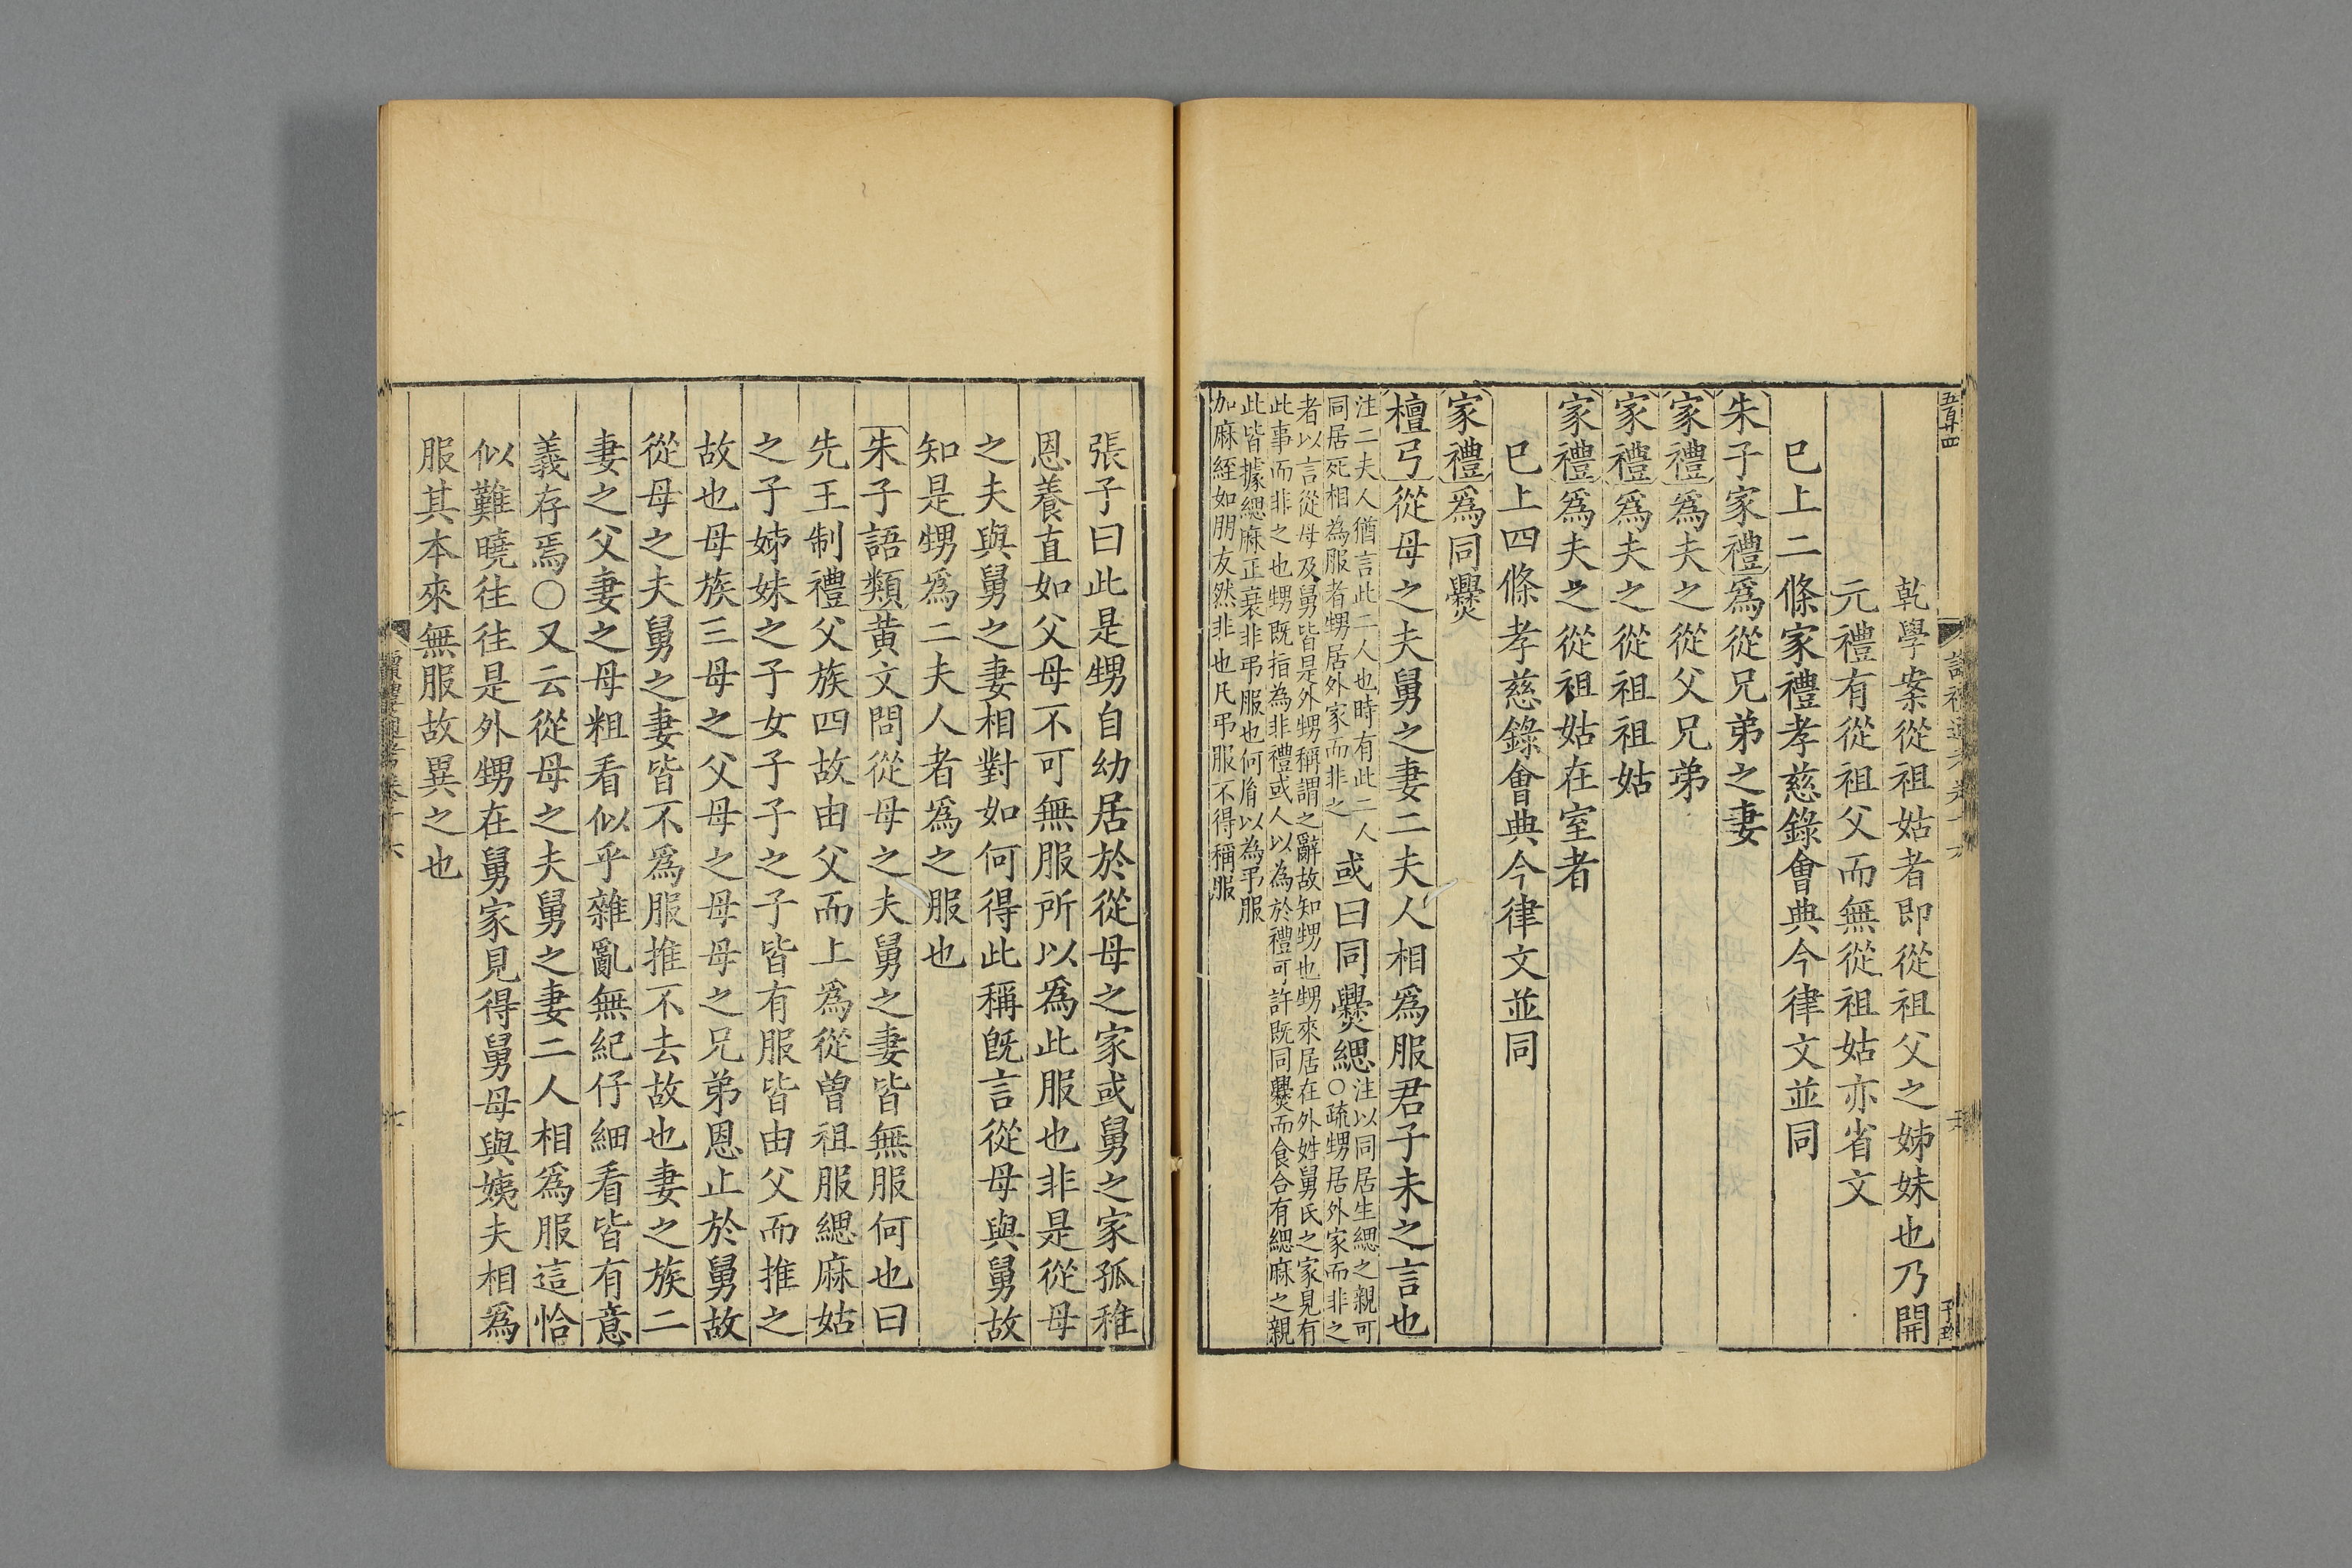 乾學案從祖姑者即從祖父之姊妹也乃開
元禮有從祖父而無從祖姑亦省文
巳上二條家禮孝慈錄會典今律文並同
朱子家禮爲從兄弟之妻
家禮爲夫之從父兄弟
家禮爲夫之從祖祖姑
家禮爲夫之從祖姑在室者
巳上四條孝慈錄會典今律文並同
家禮爲同爨
檀弓從母之夫舅之妻二夫人相爲服君子未之言也
注二夫人猶言此二人也時有此二人
同居死相為服者甥居外家而非之
或曰同爨緦
注以同居生緦之親可
○疏甥居外家而非之
者以言從母及舅皆是外甥稱謂之辭故知甥也甥來居在外姓舅氏之家見有
此事而非之也甥既指為非禮或人以為於禮可許既同爨而食合有緦麻之親
此皆據緦麻正衰非弔服也何胤以為弔服
加麻絰如朋友然非也凡弔服不得稱服
張子曰此是甥自幼居於從母之家或舅之家孤稚
恩養直如父母不可無服所以爲此服也非是從母
之夫與舅之妻相對如何得此稱旣言從母與舅故
知是甥爲二夫人者爲之服也
朱子語類黃文問從母之夫舅之妻皆無服何也曰
先王制禮父族四故由父而上爲從曾祖服緦麻姑
之子姊妹之子女子子之子皆有服皆由父而推之
故也母族三母之父母之母母之兄弟恩止於舅故
從母之夫舅之妻皆不爲服推不去故也妻之族二
妻之父妻之母粗看似乎雜亂無紀仔細看皆有意
義存焉○又云從母之夫舅之妻二人相爲服這恰
似難曉往往是外甥在舅家見得舅母與姨夫相爲
服其本來無服故異之也